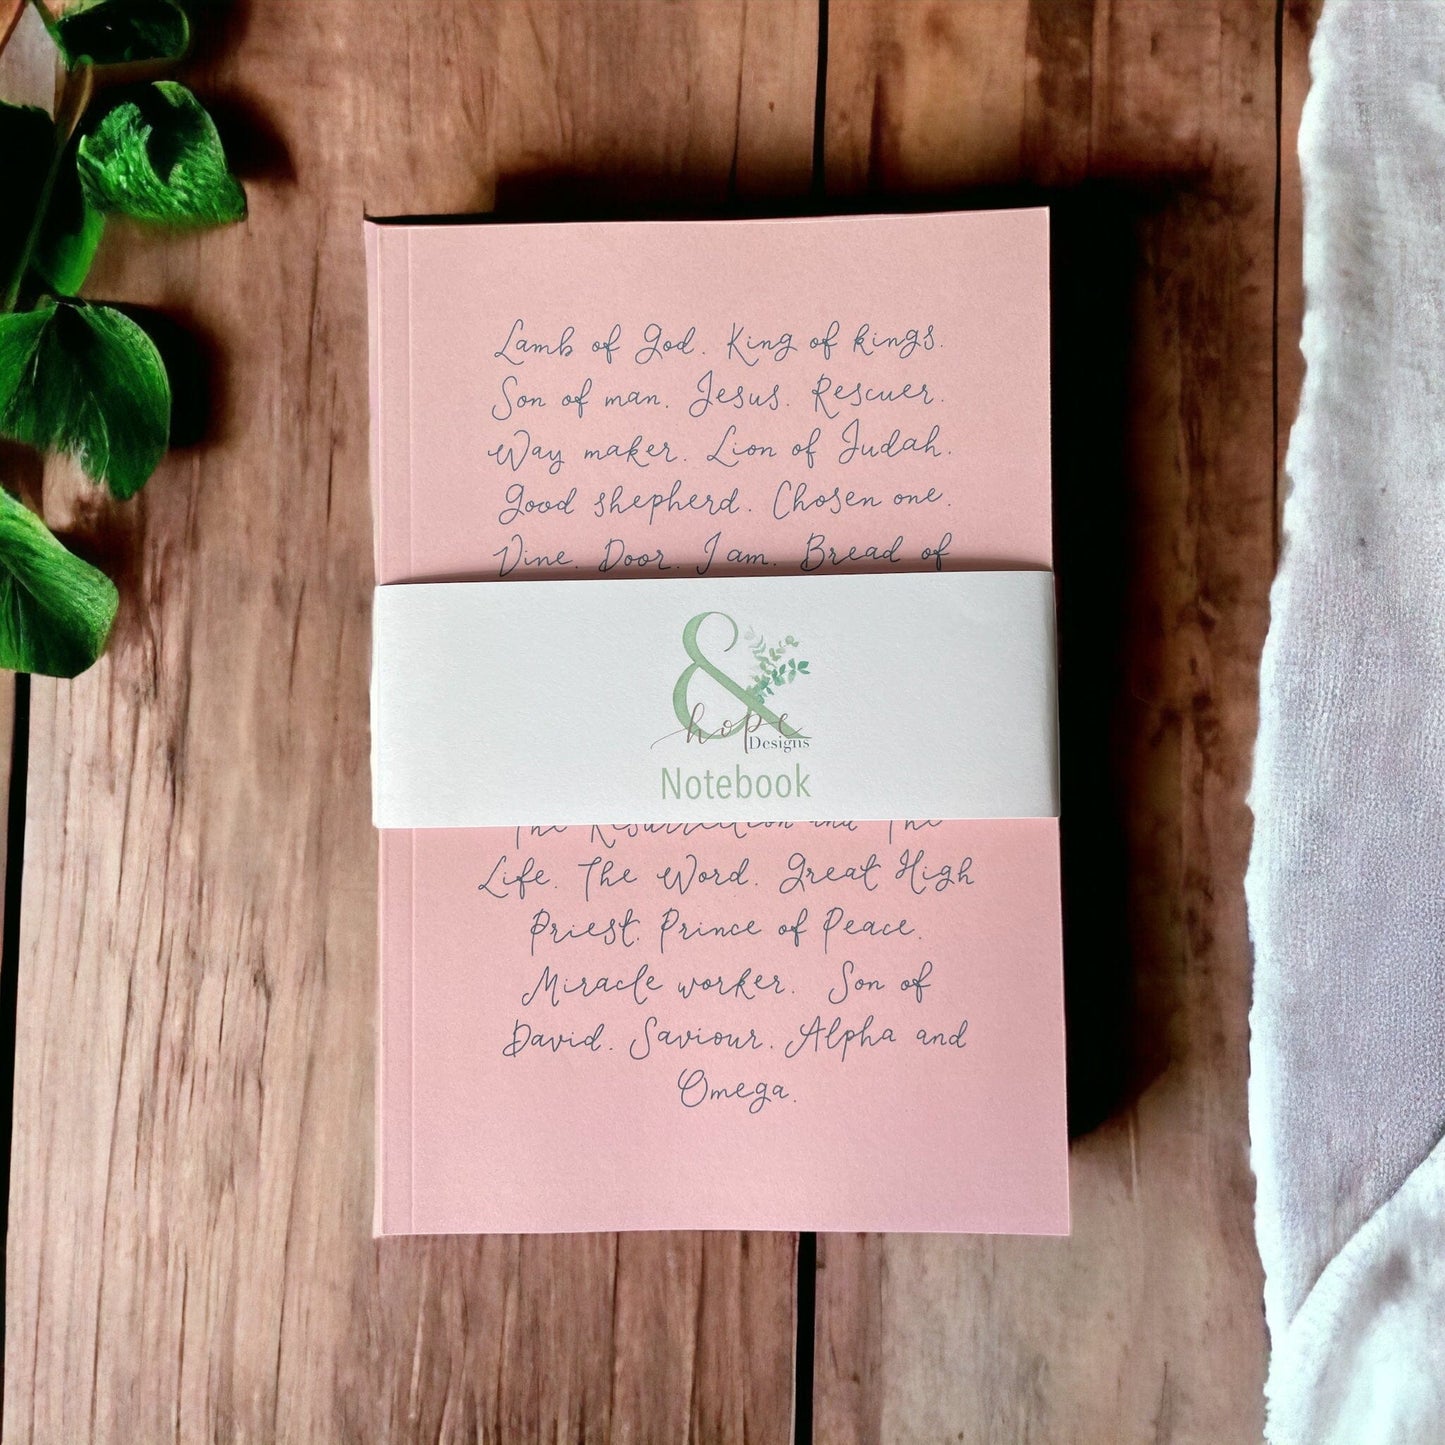 Lamb of God. King of kings.
Son of man. Jesus. Rescuer.
Way maker. Lion of Judah.
Good shepherd. Chosen one.
Vine. Door. I am. Bread of
&
hope
Designs
Notebook
The Resurrection and The
Life. The Word. Great High
Priest. Prince of Peace.
Miracle worker. Son of
David. Saviour. Alpha and
Omega.